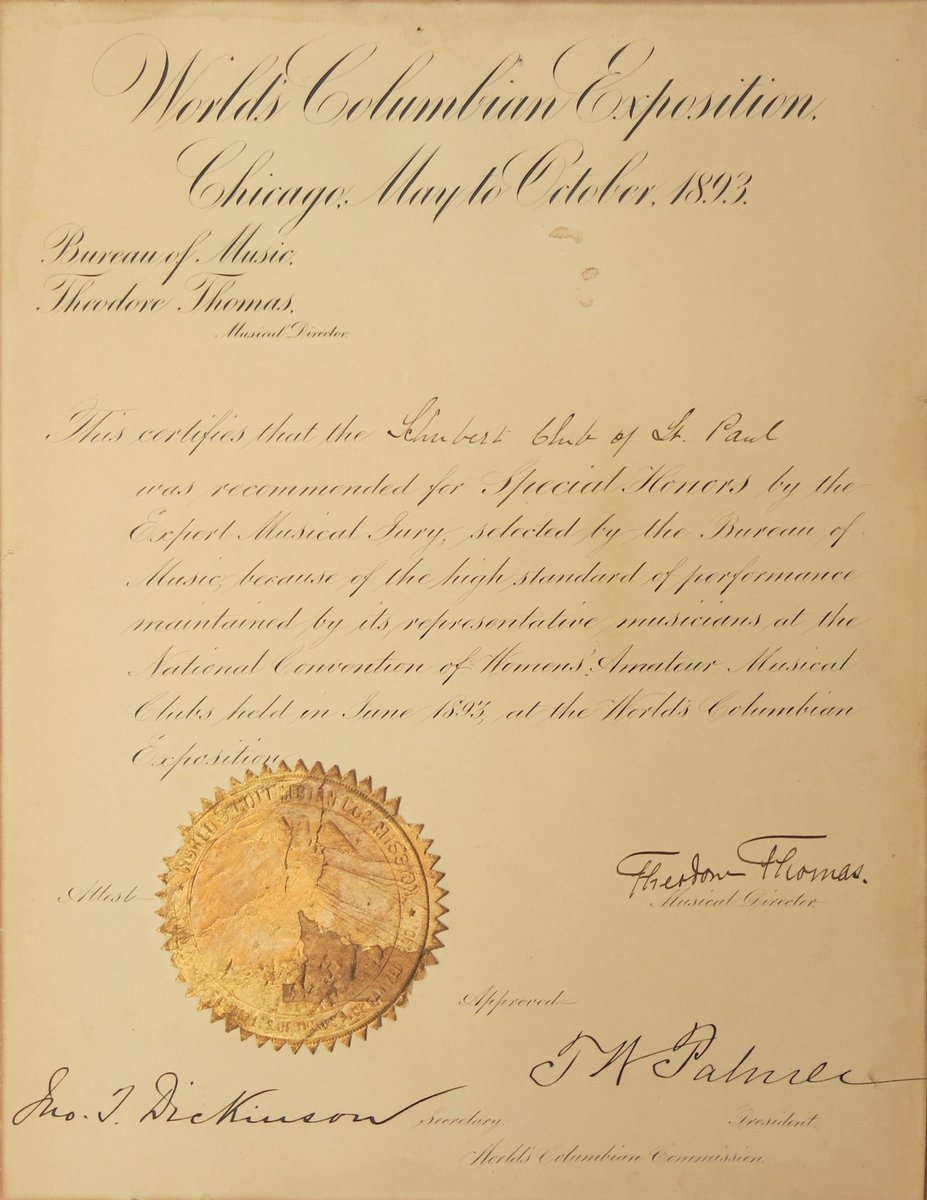 World's Columbian Exposition.
Chicago, May to October, 1893.
Bureau of Music.
Theodore Thomas,
Musical Director.
This certifies that the Schubert Club of St. Paul
was recommended for Special Honors by the
Expert Musical Jury, selected by the Bureau of
Music, because of the high standard of performance
maintained by its representative musicians at the
National Convention of Womens' Amateur Musical
Clubs held in June 1893, at the World's Columbian
Exposition.
WORLD'S COLUMBIAN COMMISSION
Attest
Theodore Thomas.
Musical Director.
Approved
T W Palmer
Jno. T. Dickinson Secretary. President.
World's Columbian Commission.